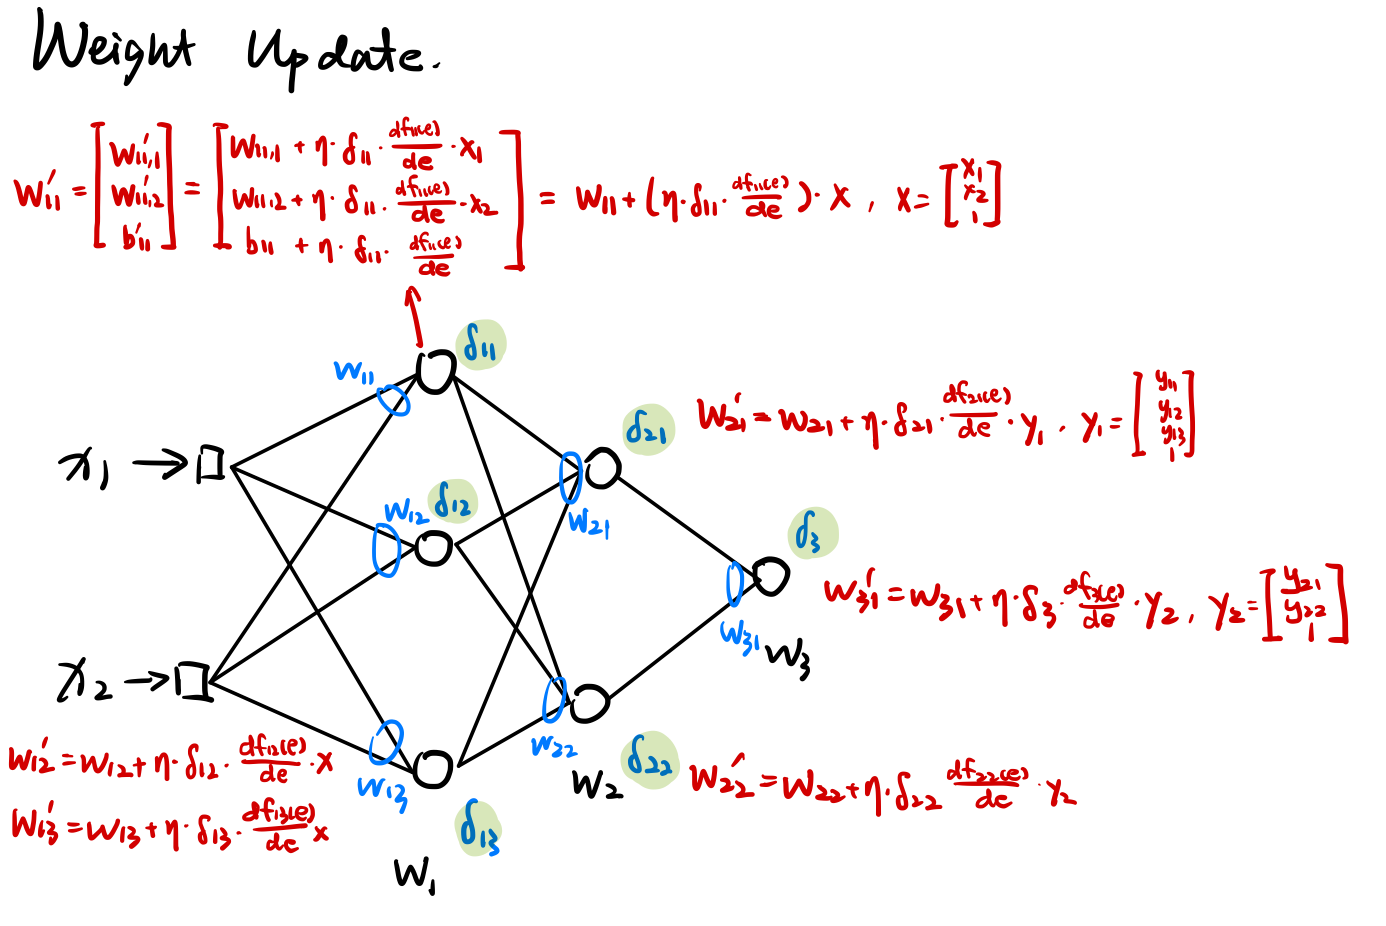 Weight Update.
w₁₁' = [w₁₁,₁' w₁₁,₂' b₁₁'] = [w₁₁,₁ + η · δ₁₁ · df₁₁(e)/de · x₁
w₁₁,₂ + η · δ₁₁ · df₁₁(e)/de · x₂
b₁₁ + η · δ₁₁ · df₁₁(e)/de] = w₁₁ + (η · δ₁₁ · df₁₁(e)/de) · x , x = [x₁ x₂ 1]
δ₁₁
w₁₁
w₂₁' = w₂₁ + η · δ₂₁ · df₂₁(e)/de · y₁ , y₁ = [y₁₁ y₁₂ y₁₃ 1]
δ₂₁
x₁ →
w₁₂ δ₁₂
w₂₁
δ₃
w₃₁' = w₃₁ + η · δ₃ · df₃(e)/de · y₂ , y₂ = [y₂₁ y₂₂ 1]
w₃₁ w₃
x₂ →
w₂₂
w₁₂' = w₁₂ + η · δ₁₂ · df₁₂(e)/de · x
w₁₃
w₂ δ₂₂
w₂₂' = w₂₂ + η · δ₂₂ df₂₂(e)/de · y₂
w₁₃' = w₁₃ + η · δ₁₃ · df₁₃(e)/de x
δ₁₃
w₁